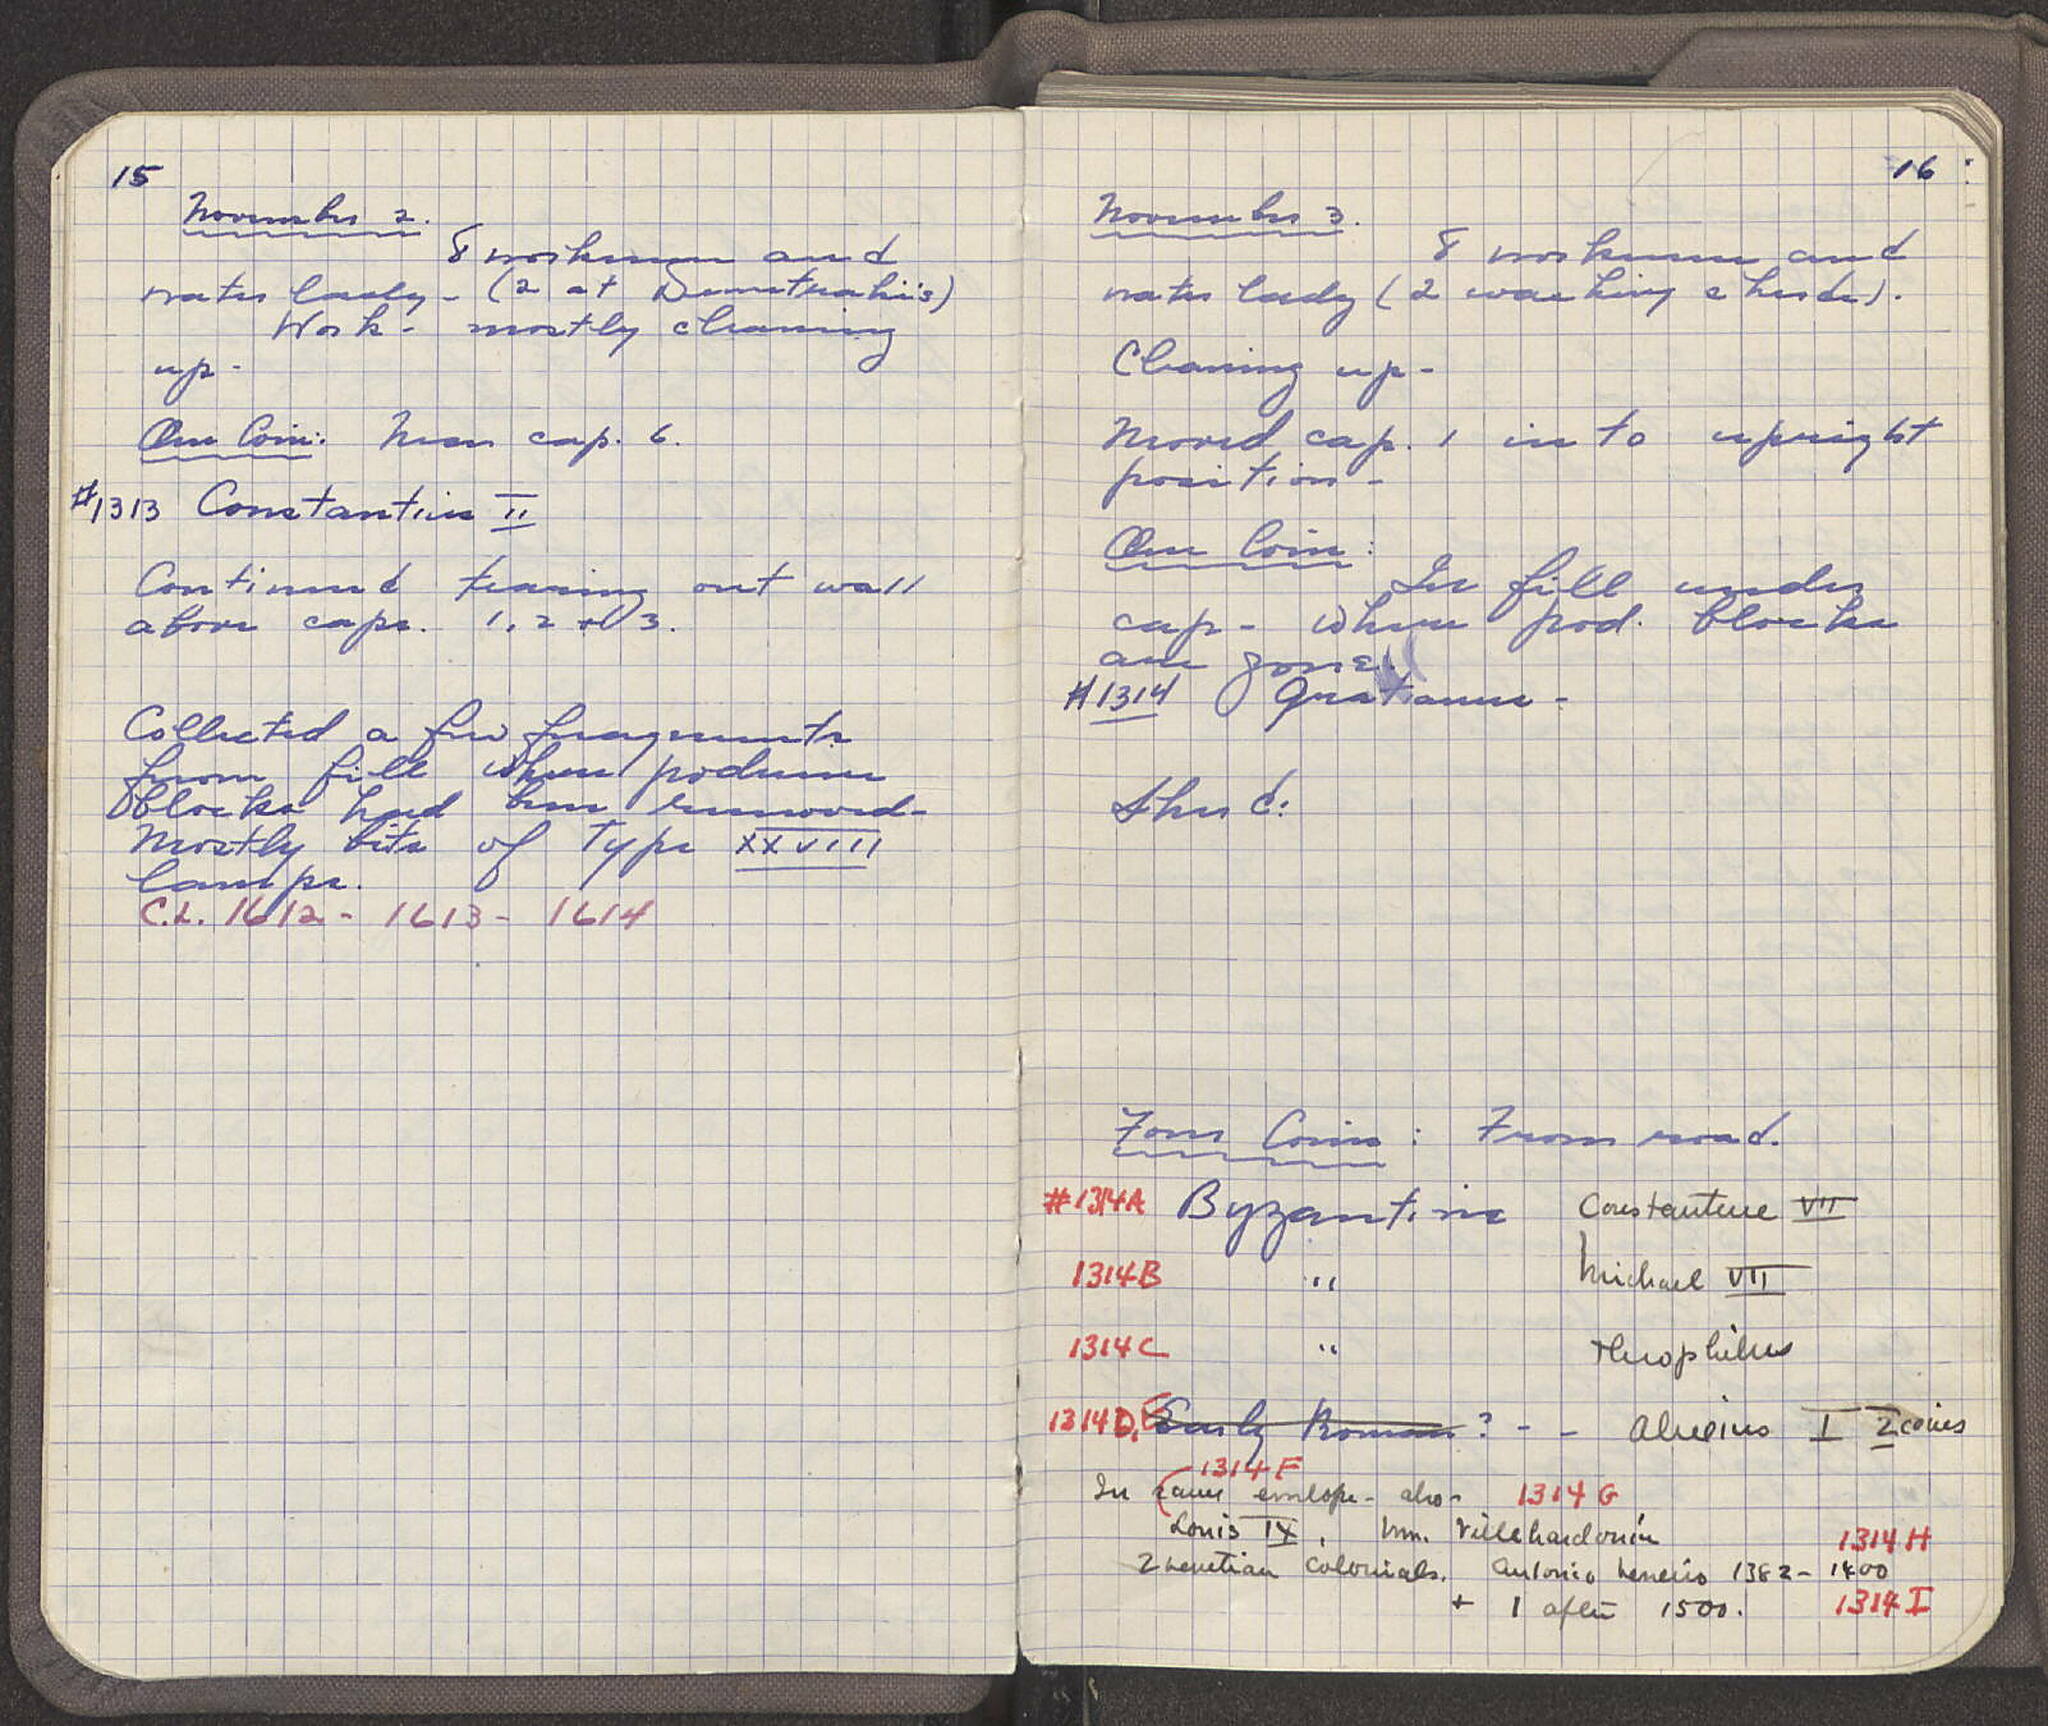 15
November 2.
8 workmen and
water lady - (2 at Demetrakis's)
Work - mostly cleaning
up -
One Coin: Near cap. 6.
#1313 Constantius II
Continued tearing out wall
above caps. 1, 2 + 3.
Collected a few fragments
from fill where podium
blocks had been removed -
Mostly bits of Type XXVIII
lamps.
C.L. 1612 - 1613 - 1614
16
November 3.
8 workmen and
water lady (2 washing sherds).
Cleaning up -
Moved cap. 1 into upright
position -
One Coin:
In fill under
cap - where pod. blocks
are gone.
#1314 Gratianus -
Sherd:
Four Coins: From road.
#1314A Byzantine Constantine VII
1314B " Michael VII
1314C " Theophilus
1314D, E Early Roman ? - - Alexius I 2 coins
1314F
In same envelope - also - 1314G
Louis IX, Wm. Villehardouin 1314H
2 Venetian Colonials. Antonio Venerio 1382 - 1400
+ 1 after 1500. 1314I